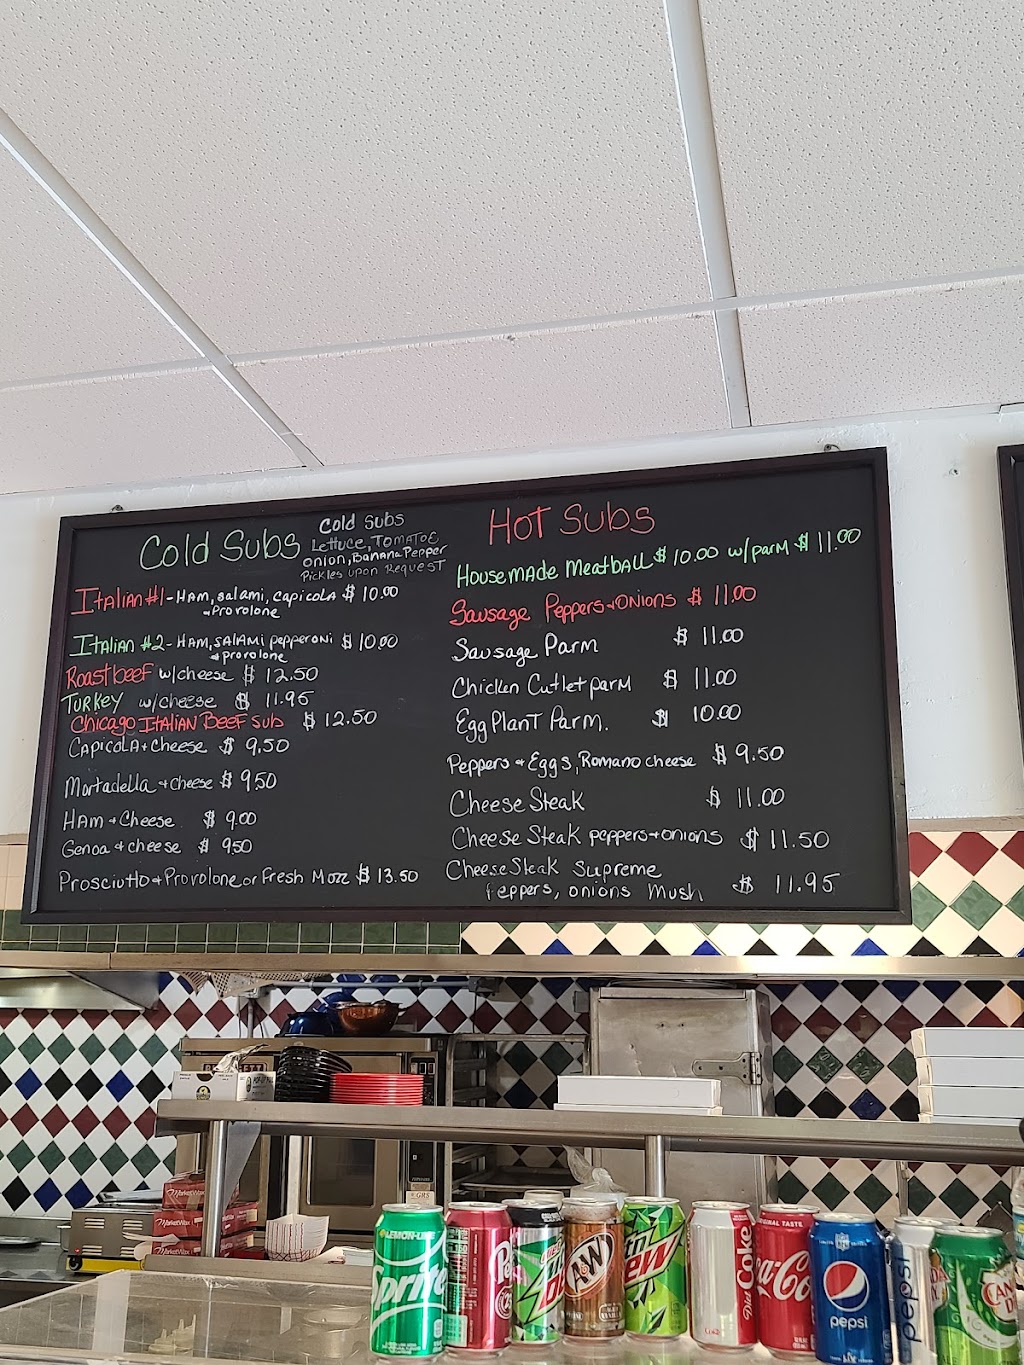 Cold Subs
Cold Subs
Lettuce, Tomatoe
onion, Banana Pepper
Pickles upon Request
Italian #1 - Ham, salami, capicola $ 10.00
+ Provolone
Italian #2 - Ham, salami pepperoni $ 10.00
+ provolone
Roast beef w/cheese $ 12.50
Turkey w/cheese $ 11.95
Chicago Italian Beef sub $ 12.50
Capicola + Cheese $ 9.50
Mortadella + Cheese $ 9.50
Ham + Cheese $ 9.00
Genoa + cheese $ 9.50
Prosciutto + Provolone or Fresh Mozz $ 13.50
Hot Subs
Housemade Meatball $ 10.00 w/parm $ 11.00
Sausage Peppers + Onions $ 11.00
Sausage Parm $ 11.00
Chicken Cutlet parm $ 11.00
Egg Plant Parm. $ 10.00
Peppers + Eggs, Romano cheese $ 9.50
Cheese Steak $ 11.00
Cheese Steak peppers + onions $ 11.50
Cheese Steak Supreme
Peppers, onions mush $ 11.95
MarketWax
MarketWax
MarketWax
LEMON-LIME
Sprite
A&W
Diet Coke
ORIGINAL TASTE
Coca-Cola
NFL
pepsi
pepsi